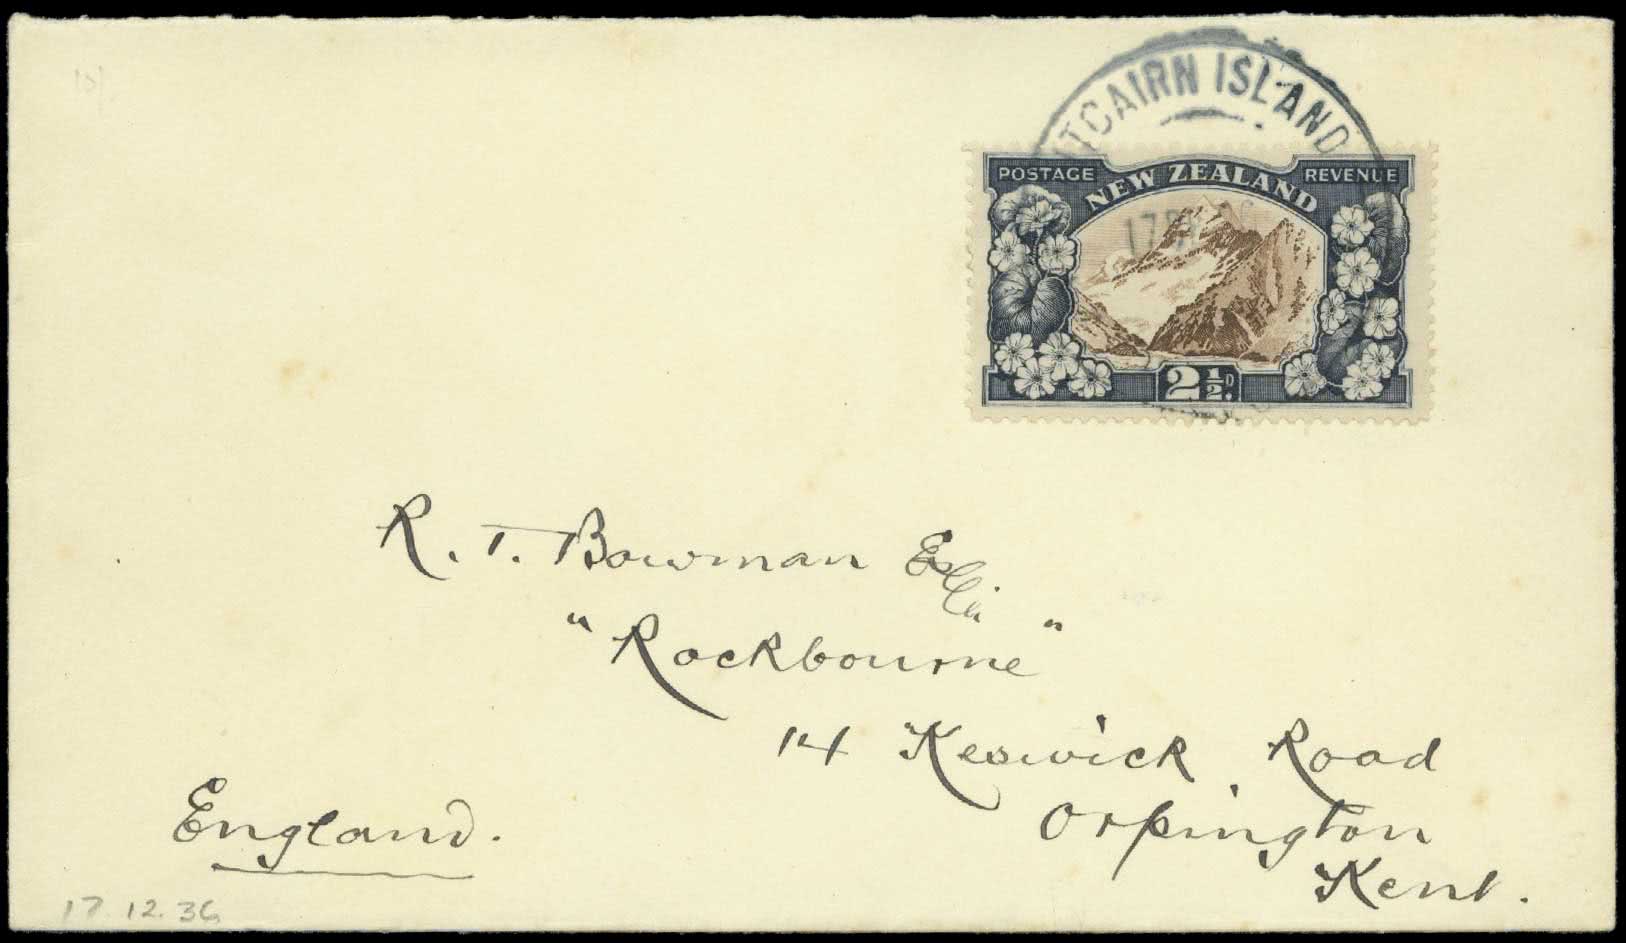 ITCAIRN ISLAND
POSTAGE NEW ZEALAND REVENUE
17
2½D.
R. T. Bowman
"Rockbourne"
14 Keswick Road
Orpington
Kent.
England.
17.12.36